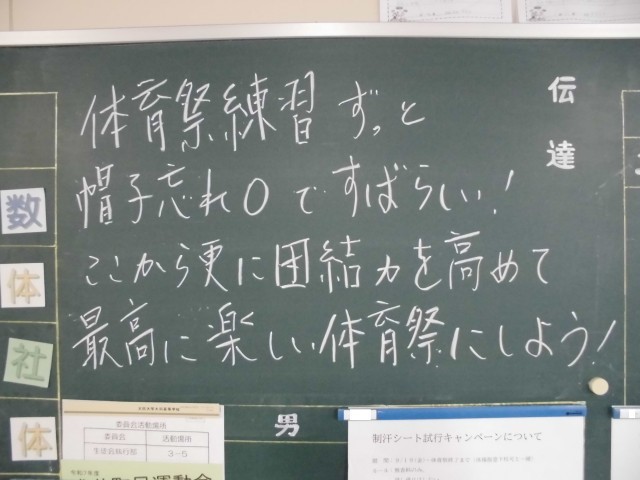 伝達
体育祭練習 ずっと
帽子忘れ0ですばらしい!
ここから更に団結力を高めて
最高に楽しい体育祭にしよう!
数
体
社
体
男
委員会活動場所
委員会 活動場所
生徒会執行部 3-5
制汗シート試行キャンペーンについて